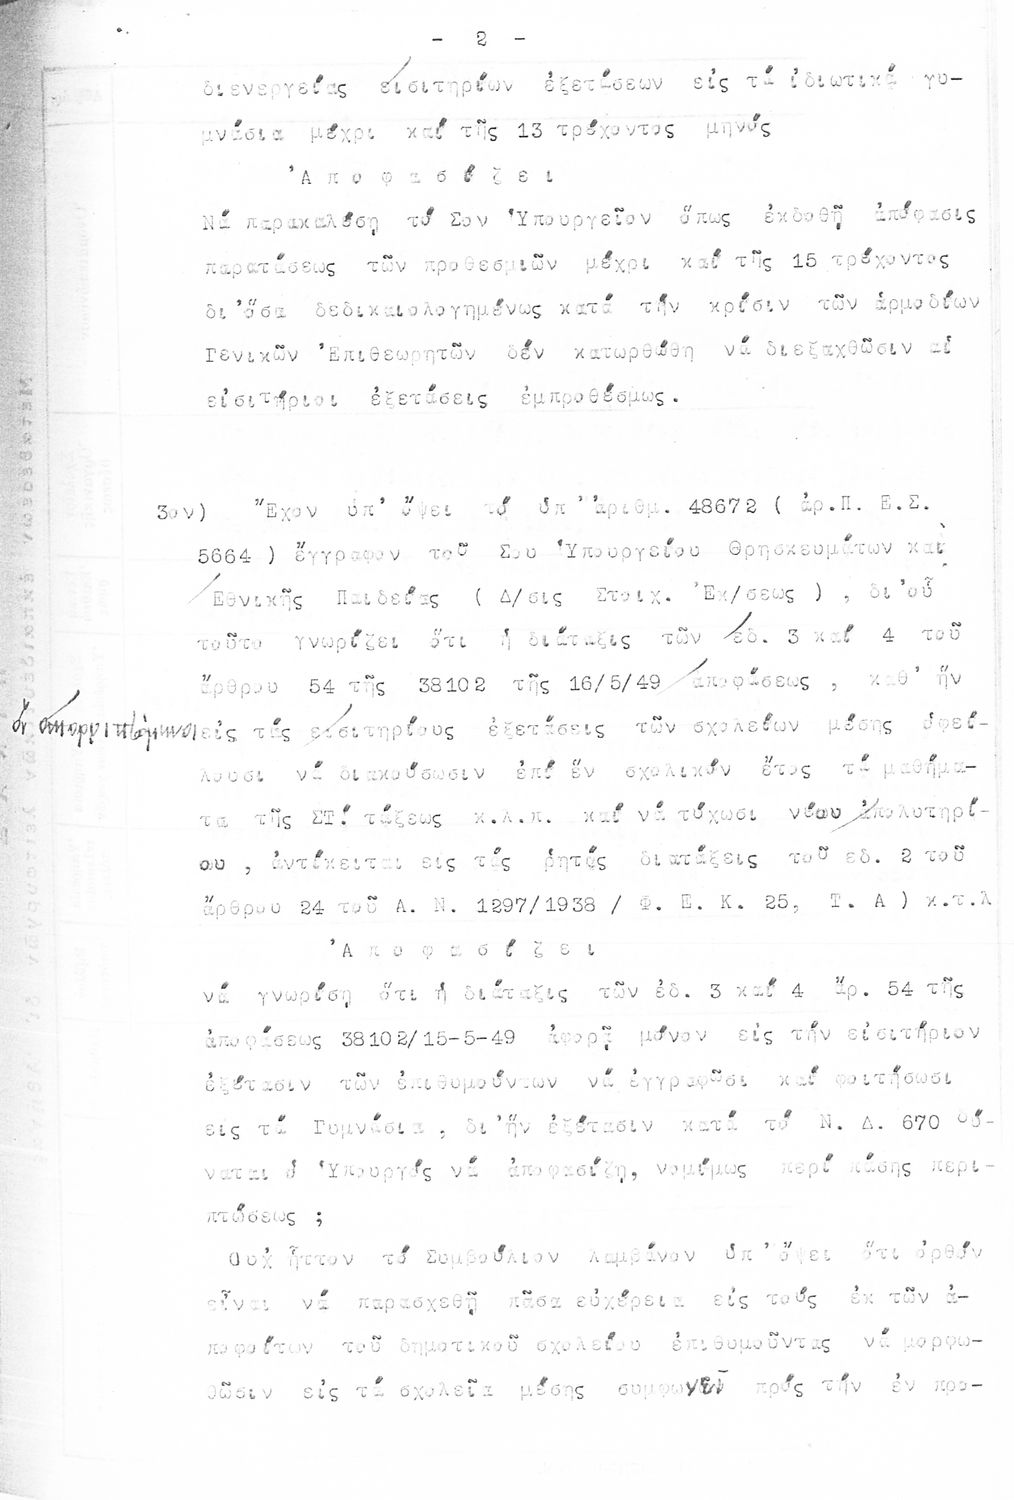 - 2 -
διενεργείας εἰσιτηρίων ἐξετάσεων εἰς τά ἰδιωτικά γυ-
μνάσια μέχρι καί τῆς 13 τρέχοντος μηνός
'Α π ο φ α σ ί ζ ε ι
Νά παρακαλέση τό Σον Ὑπουργεῖον ὅπως ἐκδοθῆ ἀπόφασις
παρατάσεως τῶν προθεσμιῶν μέχρι καί τῆς 15 τρέχοντος
δι'ὅσα δεδικαιολογημένως κατά τήν κρίσιν τῶν ἁρμοδίων
Γενικῶν Ἐπιθεωρητῶν δέν κατωρθώθη νά διεξαχθῶσιν αἱ
εἰσιτήριοι ἐξετάσεις ἐμπροθέσμως.
3ον) Ἔχον ὑπ' ὄψει τό ὑπ'ἀριθμ. 48672 ( ἀρ.Π. Ε.Σ.
5664 ) ἔγγραφον τοῦ Σου Ὑπουργείου Θρησκευμάτων καί
Ἐθνικῆς Παιδείας ( Δ/σις Στοιχ. Ἐκ/σεως ) , δι'οὗ
τοῦτο γνωρίζει ὅτι ἡ διάταξις τῶν ἐδ. 3 καί 4 τοῦ
ἄρθρου 54 τῆς 38102 τῆς 16/5/49 ἀποφάσεως , καθ' ἥν
οἱ ἀπορριπτόμενοι εἰς τάς εἰσιτηρίους ἐξετάσεις τῶν σχολείων μέσης ὀφεί-
λουσι νά διακούσωσιν ἐπί ἕν σχολικόν ἔτος τά μαθήμα-
τα τῆς ΣΤ! τάξεως κ.λ.π. καί νά τύχωσι νέου ἀπολυτηρί-
ου , ἀντίκειται εἰς τάς ρητάς διατάξεις τοῦ εδ. 2 τοῦ
ἄρθρου 24 τοῦ Α. Ν. 1297/1938 / Φ. Ε. Κ. 25, Τ. Α ) κ.τ.λ
'Α π ο φ α σ ί ζ ε ι
νά γνωρίση ὅτι ἡ διάταξις τῶν ἐδ. 3 καί 4 ἄρ. 54 τῆς
ἀποφάσεως 38102/15-5-49 ἀφορᾷ μόνον εἰς τήν εἰσιτήριον
ἐξέτασιν τῶν ἐπιθυμούντων νά ἐγγραφῶσι καί φοιτήσωσι
εἰς τά Γυμνάσια , δι'ἥν ἐξέτασιν κατά τό Ν. Δ. 670 δύ-
ναται ὁ Ὑπουργός νά ἀποφασίζη, νομίμως περί πάσης περι-
πτώσεως ;
Οὐχ ἧττον τό Συμβούλιον λαμβάνον ὑπ'ὄψει ὅτι ὀρθόν
εἶναι νά παρασχεθῆ πᾶσα εὐχέρεια εἰς τούς ἐκ τῶν ἀ-
ποφοίτων τοῦ δημοτικοῦ σχολείου ἐπιθυμοῦντας νά μορφω-
θῶσιν εἰς τά σχολεῖα μέσης συμφωνεῖ πρός τήν ἐν προ-